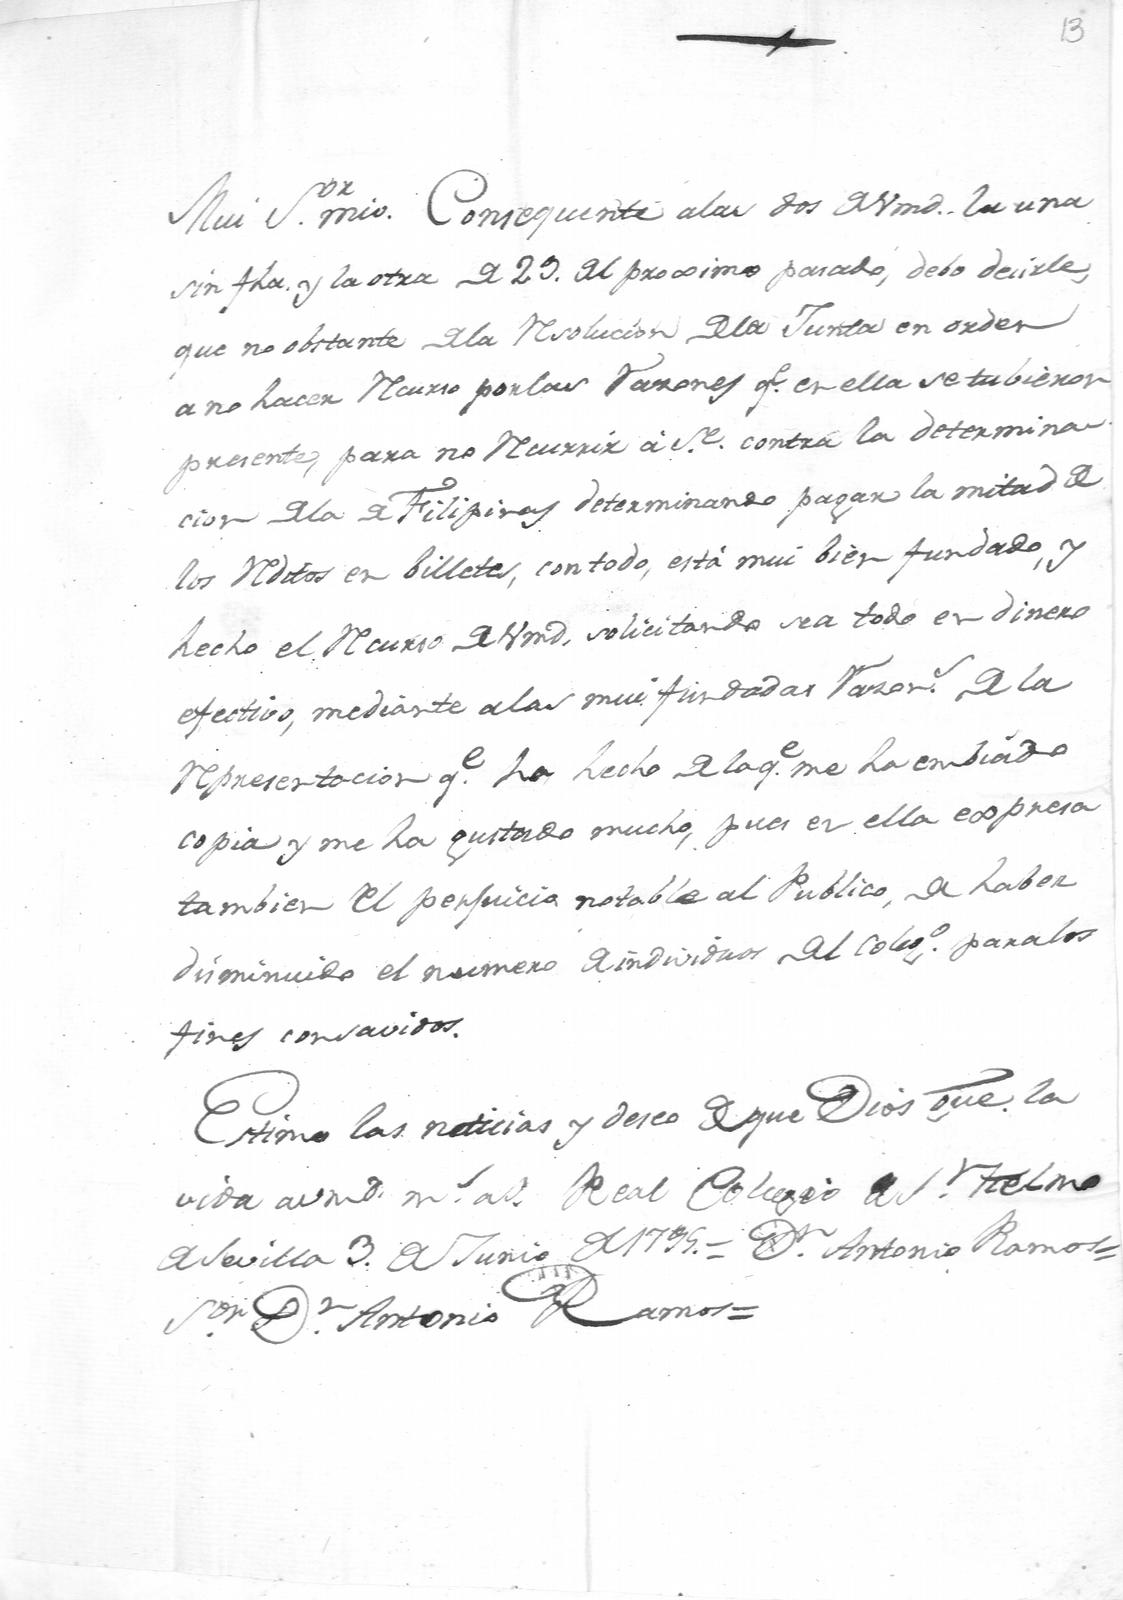 13
Mui S.or mio. Consequente alas dos de Vmd. la una
sin fha. y la otra de 23. del proximo pasado, debo decirle,
que no obstante de la Resolucion de la Junta en orden
a no hacer Recurso por las Razones q.e en ella se tubieron
presente, para no Recurrir á S.e. contra la determina
cion de la de Filipinas determinando pagar la mitad de
los Reditos en billetes, con todo, está mui bien fundado, y
hecho el Recurso de Vmd. solicitando sea todo en dinero
efectivo, mediante a las mui fundadas Razon.s de la
Representacion q.e ha hecho de la q.e me ha embiado
copia y me ha gustado mucho, pues en ella expresa
tambien el perjuicio notable al Publico, de haber
disminuido el numero de individuos del Coleg.o para los
fines consavidos.
Estimo las noticias y deseo de que Dios gue. la
vida a vmd. m.s a.s Real Colegio de S.n Telmo
de Sevilla 3. de Junio de 1795. = D.n Antonio Ramos =
S.or D.n Antonio Ramos =